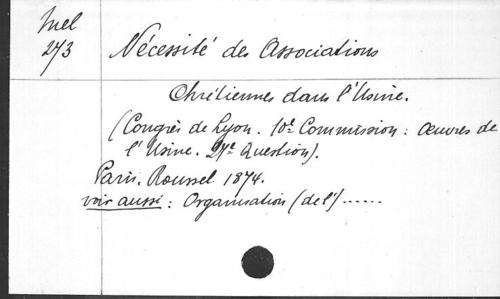 Mel
273
Nécessité des Associations
Chrétiennes dans l'Usine.
(Congrès de Lyon. 10e Commission: Œuvres de
l'Usine. 27e Question).
Paris. Roussel 1874.
voir aussi: Organisation (de l') ......